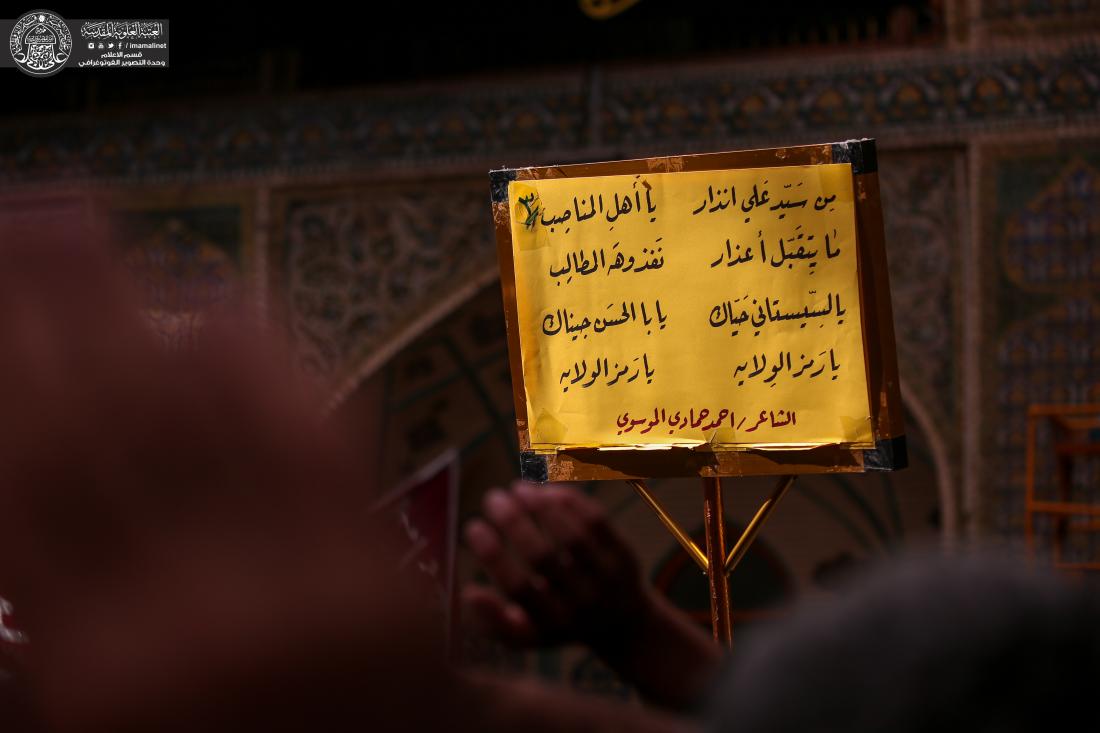 العتبة العلوية المقدسة
/ imamalinet
قسم الاعلام
وحدة التصوير الفوتوغرافي
مِن سَيّد عَلي انذار يا أهلِ المناصِب
ما يتقَبّل أعذار نَفذوهَ المطالِب
يالسِّيستاني حَيّاك يابا الحسَن جيناك
يا رَمز الوِلايه يا رَمز الولايه
الشاعر / احمد حمادي الموسوي